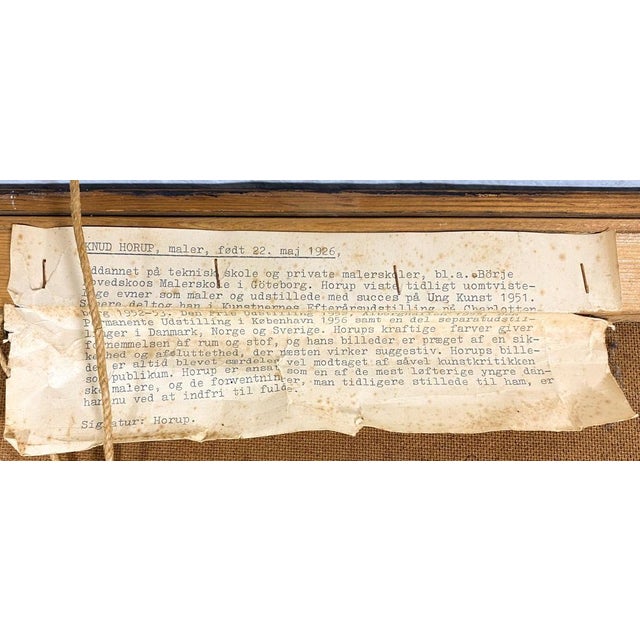 KNUD HORUP, maler, født 22. maj 1926,
Uddannet på teknisk skole og private malerskoler, bl.a. Börje
Hovedskoos Malerskole i Göteborg. Horup viste tidligt uomtviste-
lige evner som maler og udstillede med succes på Ung Kunst 1951.
Senere deltog han i Kunstnernes Efterårsudstilling på Charlotten-
borg 1952-53. Den Frie Udstilling
Permanente Udstilling i København 1956 samt en del separatudstil-
linger i Danmark, Norge og Sverige. Horups kraftige farver giver
fornemmelsen af rum og stof, og hans billeder er præget af en sik-
kerhed og afsluttethed, der næsten virker suggestiv. Horups bille-
der er altid blevet særdeles vel modtaget af såvel kunstkritikken
som publikum. Horup er ansat som en af de mest løfterige yngre dan-
ske malere, og de forventninger, man tidligere stillede til ham, er
han nu ved at indfri til fulde.
Signatur: Horup.